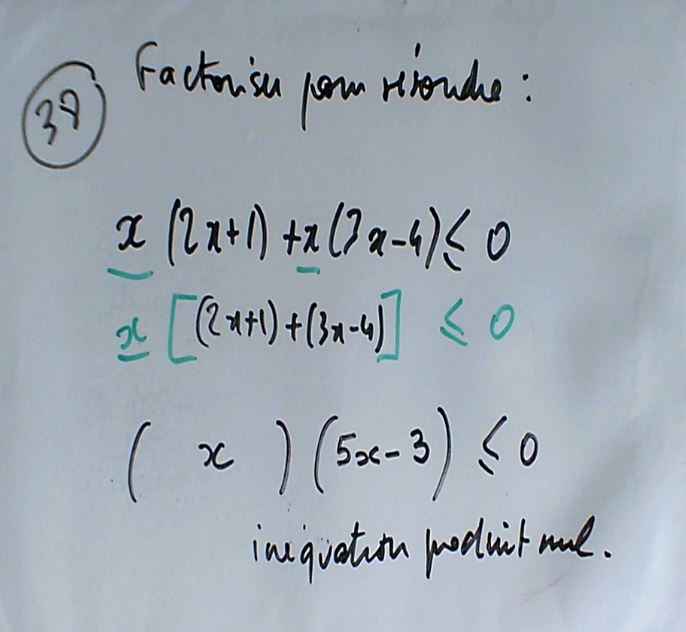 38
Factoriser pour résoudre :
x (2x+1) + x (3x-4) ≤ 0
x [(2x+1) + (3x-4)] ≤ 0
( x ) (5x-3) ≤ 0
inéquation produit nul.